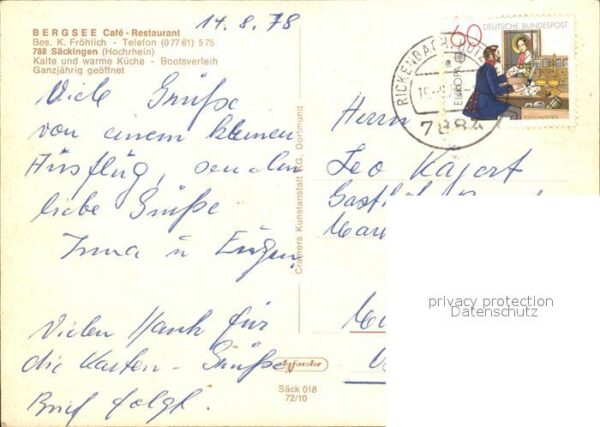 14.8.78
BERGSEE Café-Restaurant
Bes. K. Fröhlich - Telefon (07761) 575
788 Säckingen (Hochrhein)
Kalte und warme Küche - Bootsverleih
Ganzjährig geöffnet
60
DEUTSCHE BUNDESPOST
EUROPA
RICKENBACH
7884
Viele Grüße
von einem kleinen
Ausflug, senden
liebe Grüße
Irma u Eugen
Vielen Dank für
die Karten-Grüße
Brief folgt.
Cramers Kunstanstalt KG, Dortmund
Herrn
Leo
privacy protection
Datenschutz
Säck 018
72/10